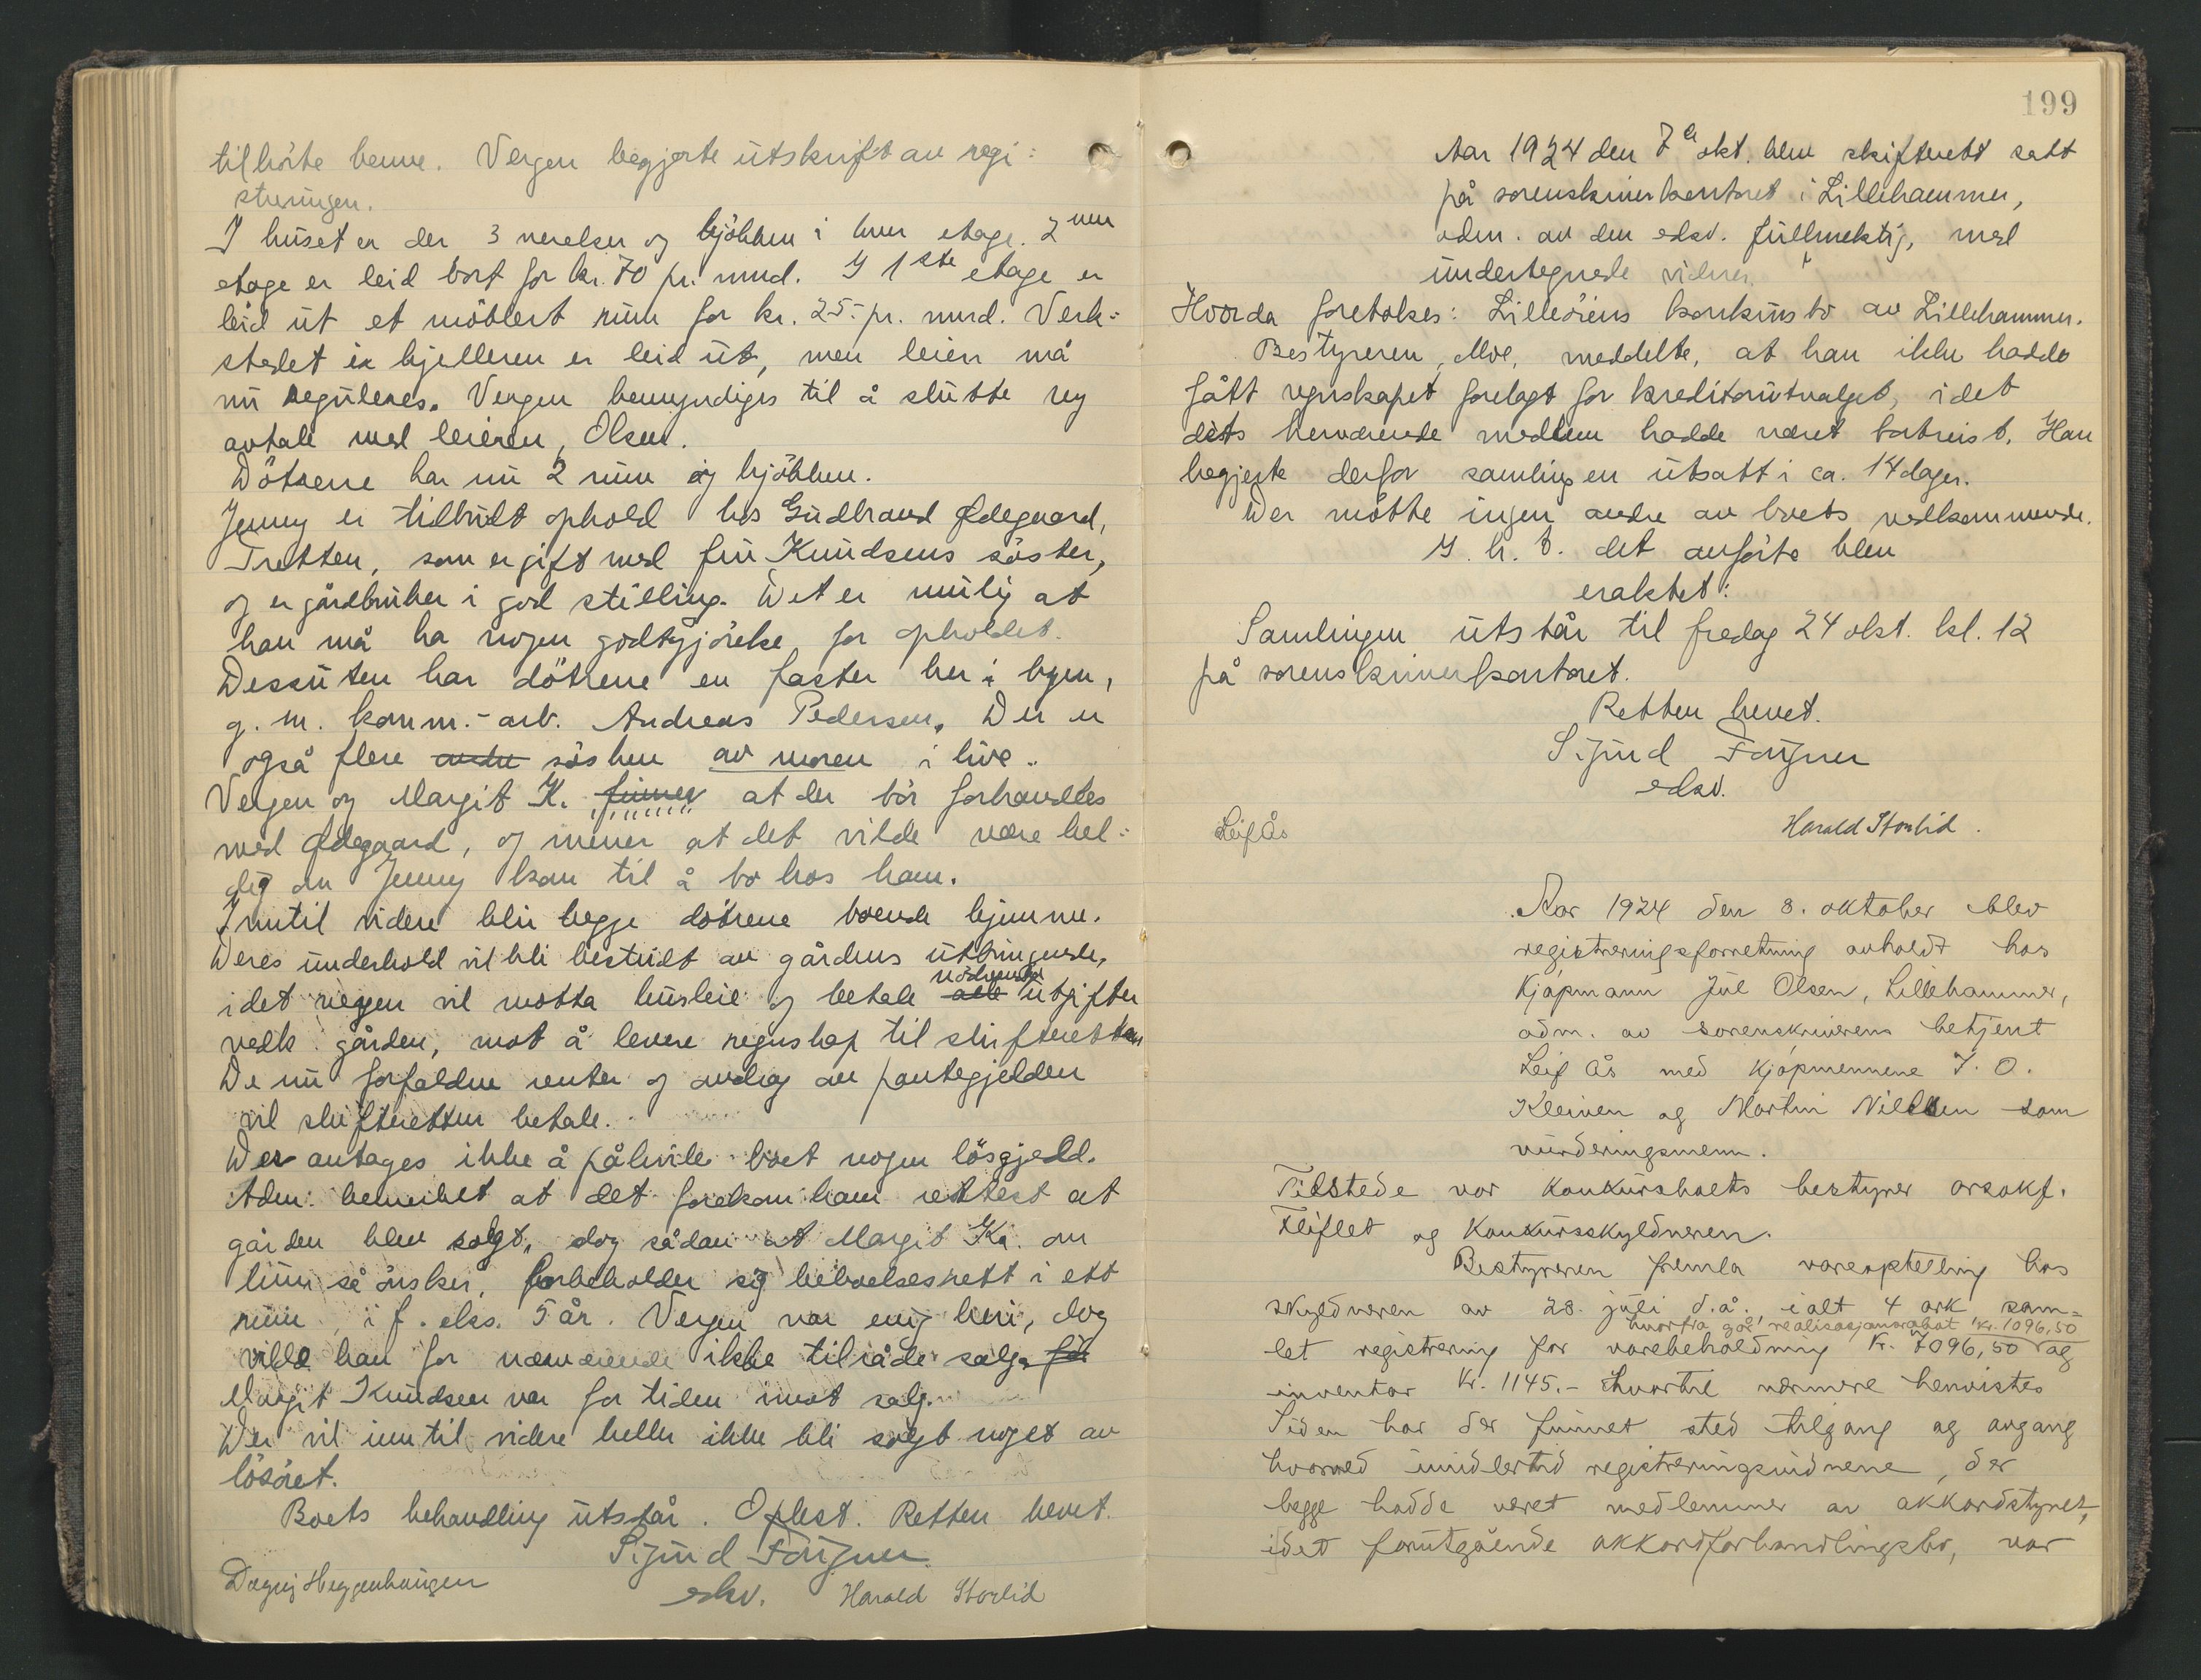 tilhörte henne. Vergen begjerte utskrift av regi=
streringen.
I huset er der 3 værelser og kjökken i hver etage. 2nen
etage er leid bort for kr. 70 pr. mnd. I 1ste etage er
leid ut et möblert rum for kr. 25.- pr. mnd. Verk=
stedet i kjelleren er leid ut, men leien må
nu reguleres. Vergen bemyndiges til å slutte ny
avtale med leieren, Olsen.
Dötrene har nu 2 rum og kjökken.
Jenny er tilbudt ophold hos Gudbrand Ødegaard,
Tretten, som er gift med fru Knudsens söster,
og er gårdbruker i god stilling. Det er mulig at
han må ha nogen godtgjörelse for opholdet.
Dessuten har dötrene en faster her i byen,
g. m. komm.-arb. Andreas Pedersen. Der er
også flere andre sösken av moren i live.
Vergen og Margit K. finner at der bör forhandles
med Ødegaard, og mener at det vilde være hel=
dig om Jenny kom til å bo hos ham.
Inntil videre blir begge dötrene boende hjemme.
Deres underhold vil bli bestridt av gårdens utbringende,
nödvendige
idet vergen vil motta husleie og betale alle utgifter
vedk. gården, mot å levere regnskap til skifteretten
De nu forfaldne renter og avdrag av pantegjelden
vil skifteretten betale.
Der antages ikke å påhvile boet nogen lösgjeld.
Adm. bemerket at det forekom ham rettest at
gården blev solgt, dog sådan at Margit K. om
hun så önsker, forbeholder sig beboelsesrett i ett
rum, i f. eks. 5 år. Vergen var enig heri, dog
vilde han for nærværende ikke tilråde salg. før
Margit Knudsen var for tiden imot salg.
Der vil inntil videre heller ikke bli solgt noget av
lösöret.
Boets behandling utstår. Oplest. Retten hevet.
Sigurd Fougner
edsv.
Dagny Heggenhaugen
Harald Storlid
199
Aar 1924 den 7de okt. blev skifterett satt
på sorenskriverkontoret i Lillehammer,
adm. av den edsv. fullmektig, med
undertegnede vidner.
Hvorda foretokes: Lilleöiens konkursbo av Lillehammer.
Bestyreren, Moe, meddelte, at han ikke hadde
fått regnskapet forelagt for kreditorutvalget, idet
dets herværende medlem hadde været bortreist. Han
begjerte derfor samlingen utsatt i ca. 14 dager.
Der mötte ingen andre av boets vedkommende.
I. h. t. det anförte blev
eraktet:
Samlingen utstår til fredag 24 okt. kl. 12
på sorenskriverkontoret.
Retten hevet.
Sigurd Fougner
edsv.
Leif Ås
Harald Storlid.
Aar 1924 den 8. oktober blev
registreringsforretning avholdt hos
Kjöpmann Jul Olsen, Lillehammer,
adm. av sorenskriverens betjent
Leif Ås med kjöpmennene J. O.
Kleiven og Martin Nilssen som
vurderingsmenn.
Tilstede var konkursboets bestyrer orsakf.
Fliflet og konkursskyldneren.
Bestyreren fremla vareoptelling hos
skyldneren av 28. juli d.å. ialt 4 ark, sam=
hvorfra går realisasjonsrabat kr. 1096,50
let registrering for varebeholdning kr. 7096,50 og
inventar kr. 1145.- hvortil nærmere henvistes
Siden har der funnet sted tilgang og avgang
hvormed imidlertid registreringsvidnene, der
begge hadde været medlemmer av akkordstyret,
idet forutgående akkordforhandlingsbo, var